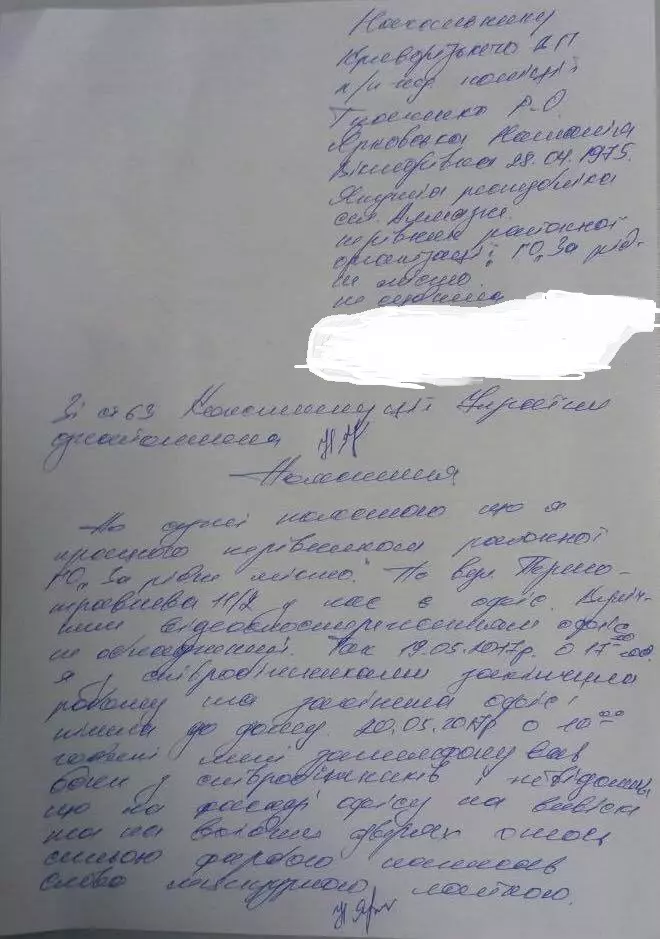 Начальнику
Криворізького ВП
п/п-ка поліції
Р.О.
Ярковська Наталія
Вікторівна 28.04.1975.
Якутія республіка
керівник районної
організації ГО „За рід-
не місто.
не судима
Зі ст 63 Конституції України
ознайомлена
Пояснення
По суті можу що я
працюю керівником районної
ГО „За рідне місто." По вул. Першо-
травнева 11/2 у нас є офіс.
відеоспостереженням офіс
не обладнаний. Так 19.05.2017р. о 17 00 год.
я і співробітниками закінчила
роботу та зачинила офіс і
пішла до дому. 20.05.2017р о 10 00
годині мені зателефонував
один з співробітників і повідомив,
що на фасаді офісу на вивісці
та на вхідних дверях хтось
синьою фарбою написав
слово нецензурною лайкою.